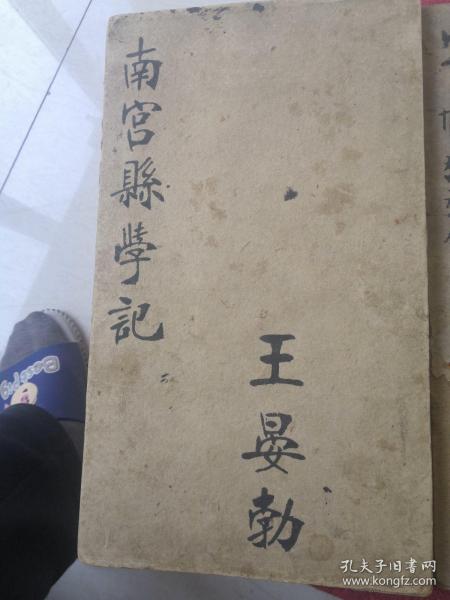 南宫縣學記
王晏勃
孔夫子旧书网
www.kongfz.com